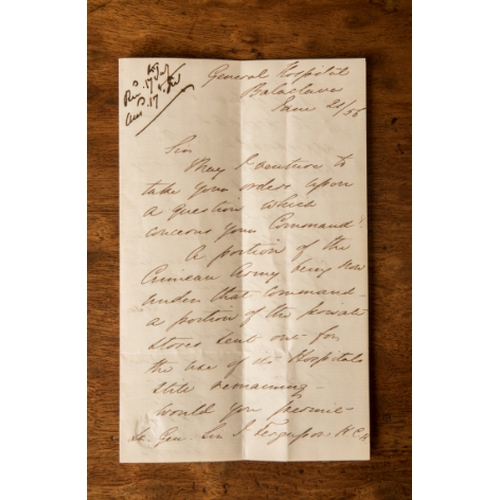 Rec 17 July
Ans 17
General Hospital
Balaclava
June 21/56
Sir
May I venture to
take your orders upon
a question which
concerns your Command?
A portion of the
Crimean Army being now
under that Command –
a portion of the private
stores sent out for
the use of its Hospitals
still remaining –
would you permit
Lt. Gen. Sir J. Ferguson K.C.B